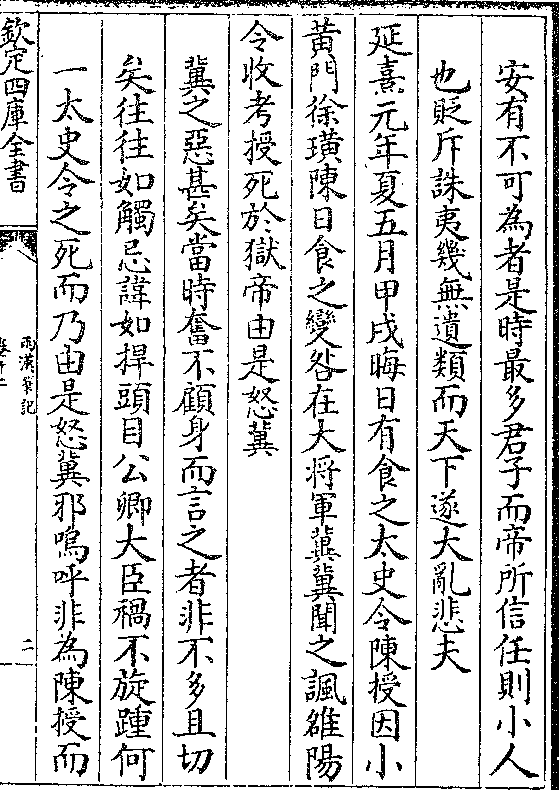 安有不可為者是時最多君子而帝所信任則小人
也貶斥誅夷幾無遺類而天下遂大亂悲夫
延熹元年夏五月甲戌晦日有食之太史令陳授因小
黃門徐璜陳日食之變咎在大將軍冀冀聞之諷雒陽
令收考授死於獄帝由是怒冀
冀之惡甚矣當時奮不顧身而言之者非不多且切
矣往往如觸忌諱如捍頭目公卿大臣禍不旋踵何
一太史令之死而乃由是怒冀邪嗚呼非為陳授而
欽定四庫全書
兩漢筆記
二